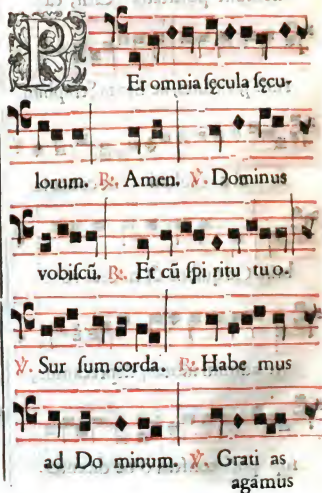 PEr omnia ſęcula ſęcu-
lorum. ℟. Amen. ℣. Dominus
vobiſcũ. ℟. Et cũ ſpi ritu tuo.
℣. Sur ſum corda. ℟. Habe mus
ad Do minum. ℣. Grati as
agamus